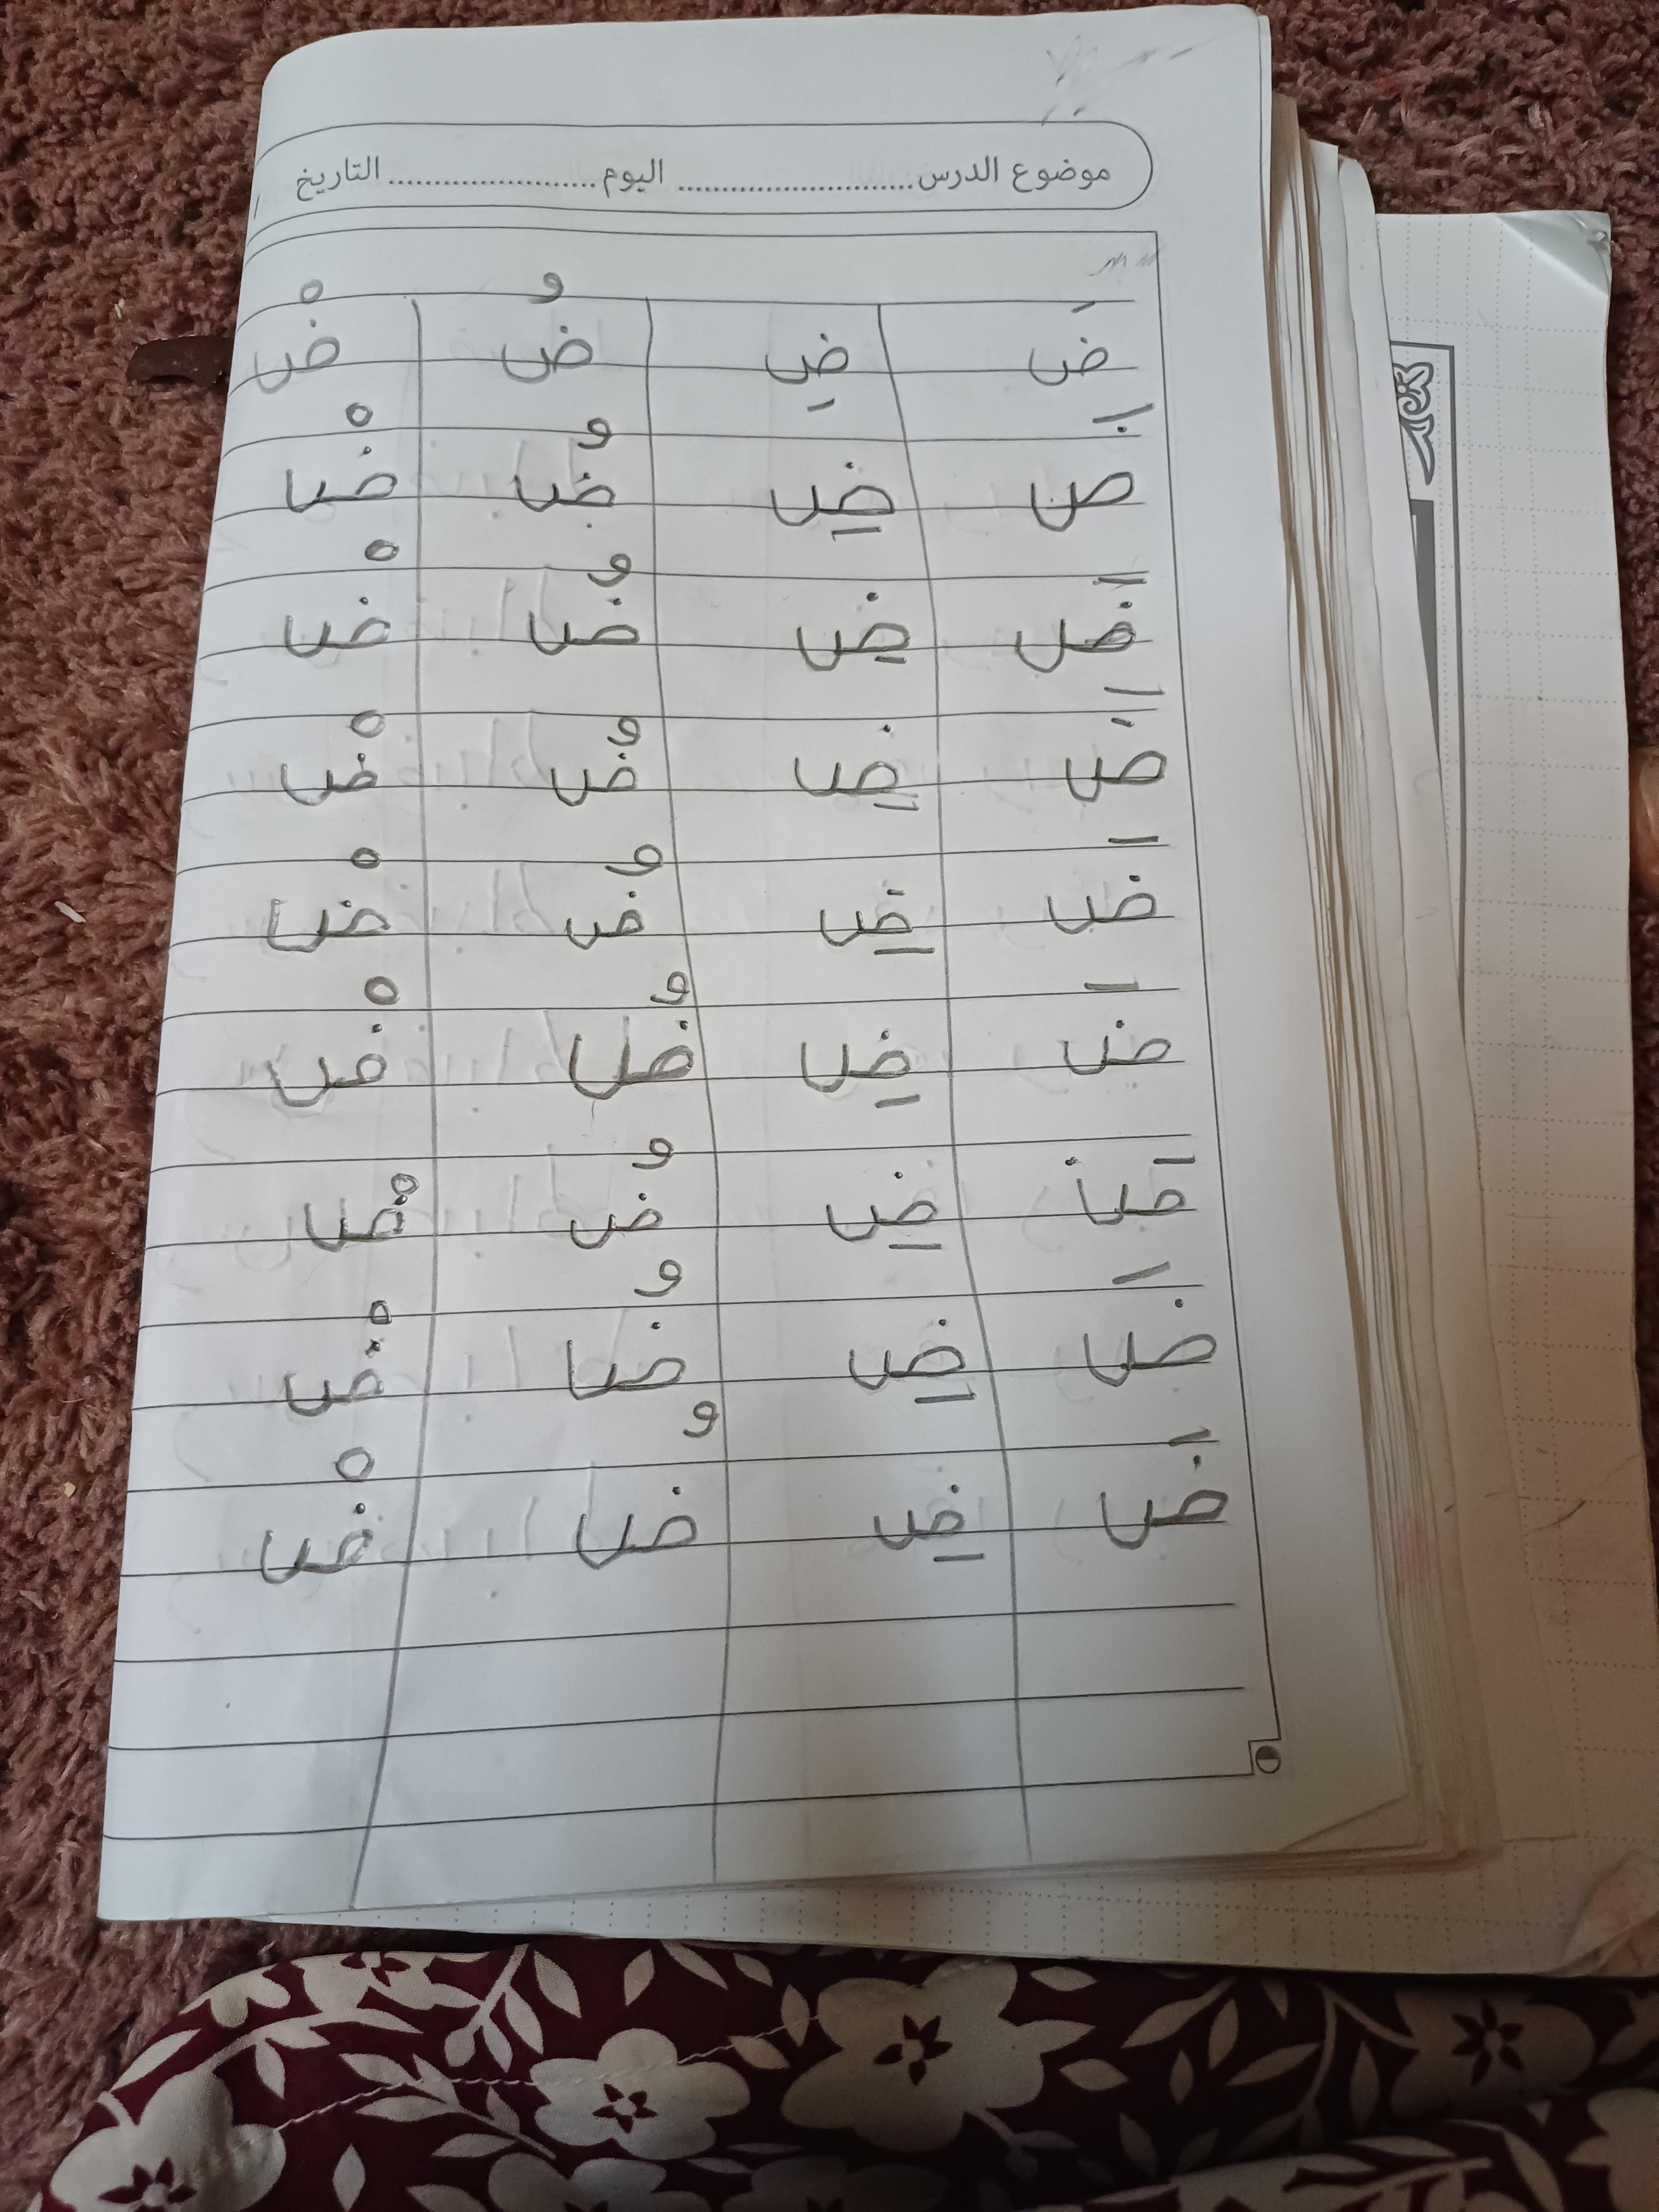 موضوع الدرس........................ اليوم........................ التاريخ /
ضَ ضِ ضُ ضْ
ضَ ضِ ضُ ضْ
ضَ ضِ ضُ ضْ
ضَ ضِ ضُ ضْ
ضَ ضِ ضُ ضْ
ضَ ضِ ضُ ضْ
ضَ ضِ ضُ ضْ
ضَ ضِ ضُ ضْ
ضَ ضِ ضُ ضْ